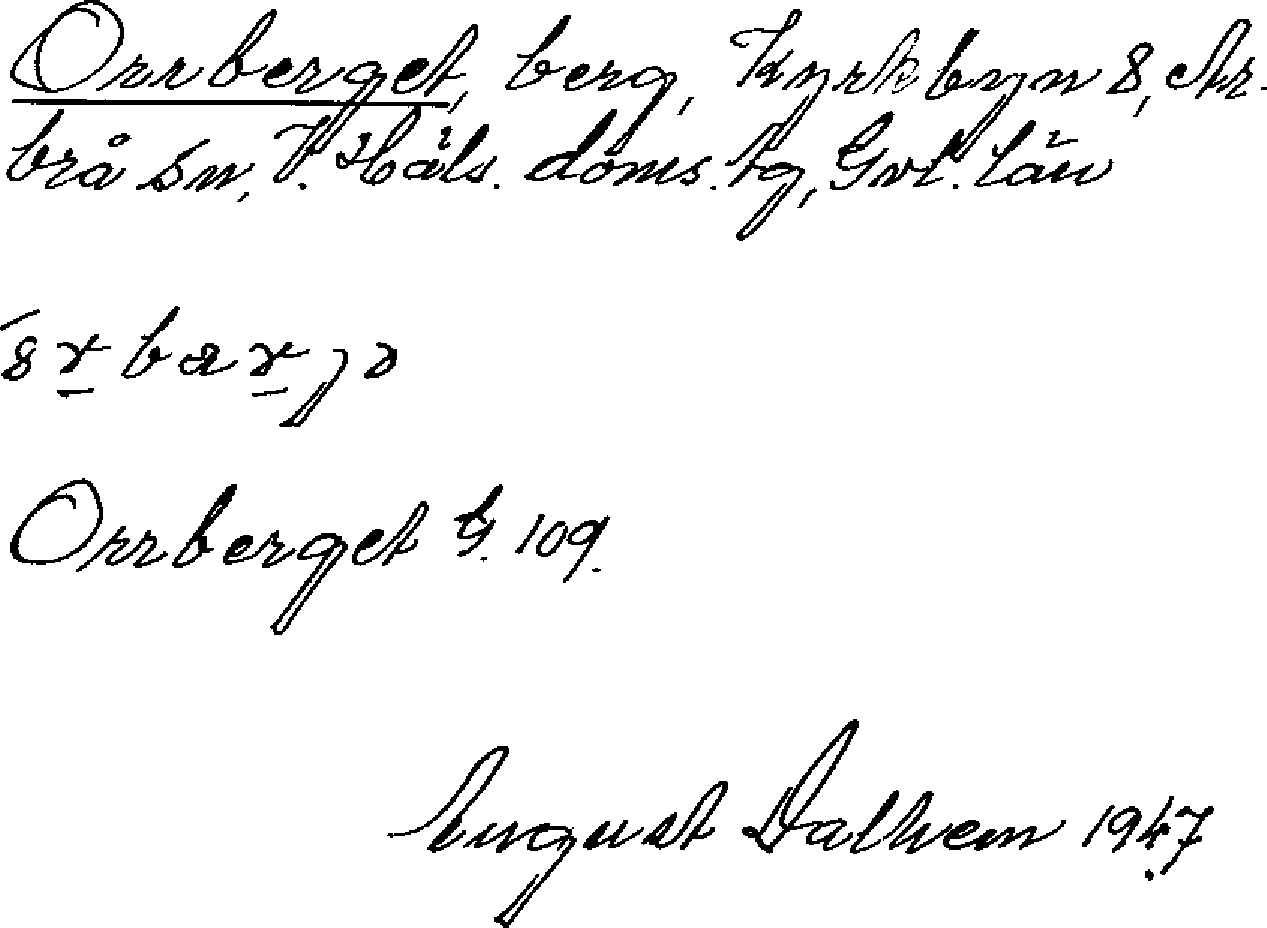 Orrberget, berg, Kyrkbyn 8, Ar-
brå sn, V. Häls. doms. tg, Gvl. län
Orrberget G. 109.
August Dalhem 1947